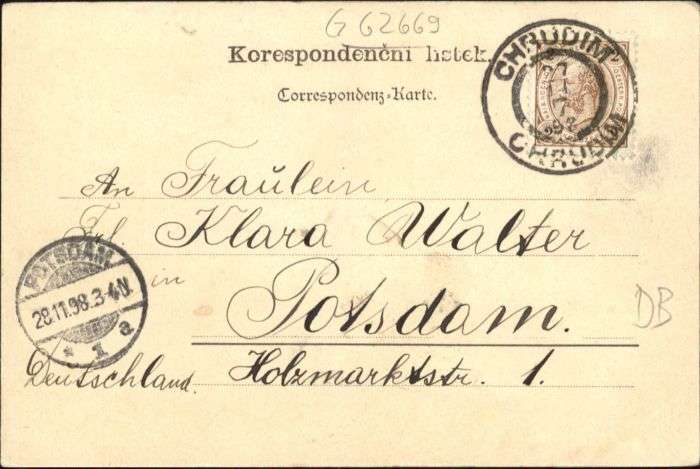 G 62669
Korespondenční lístek.
Correspondenz-Karte.
CHRUDIM
27
11
CHRUDIM
An Fräulein,
Frl. Klara Walter
in
Potsdam.
Holzmarktstr. 1.
Deutschland.
POTSDAM
28.11.98.3-4N.
* 1 a
DB